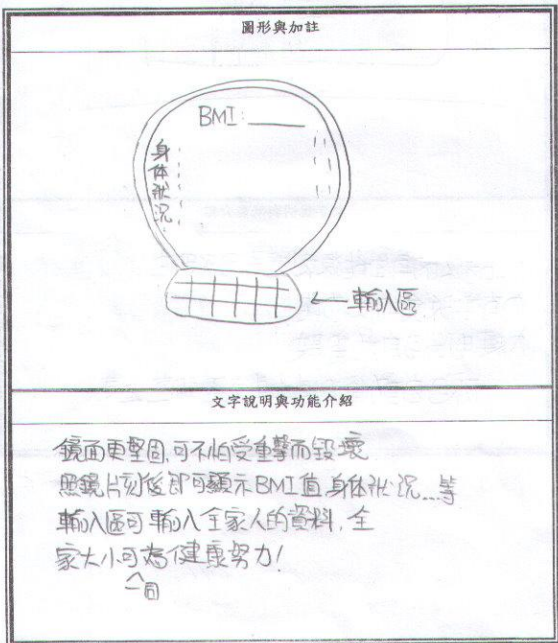 圖形與加註
BMI:
身体狀況:
←輸入區
文字說明與功能介紹
鏡面更堅固,可不怕受重擊而毀壞.
照鏡片刻後即可顯示BMI值,身体狀況...等
輸入區可輸入全家人的資料,全
家大小可為健康努力!
同